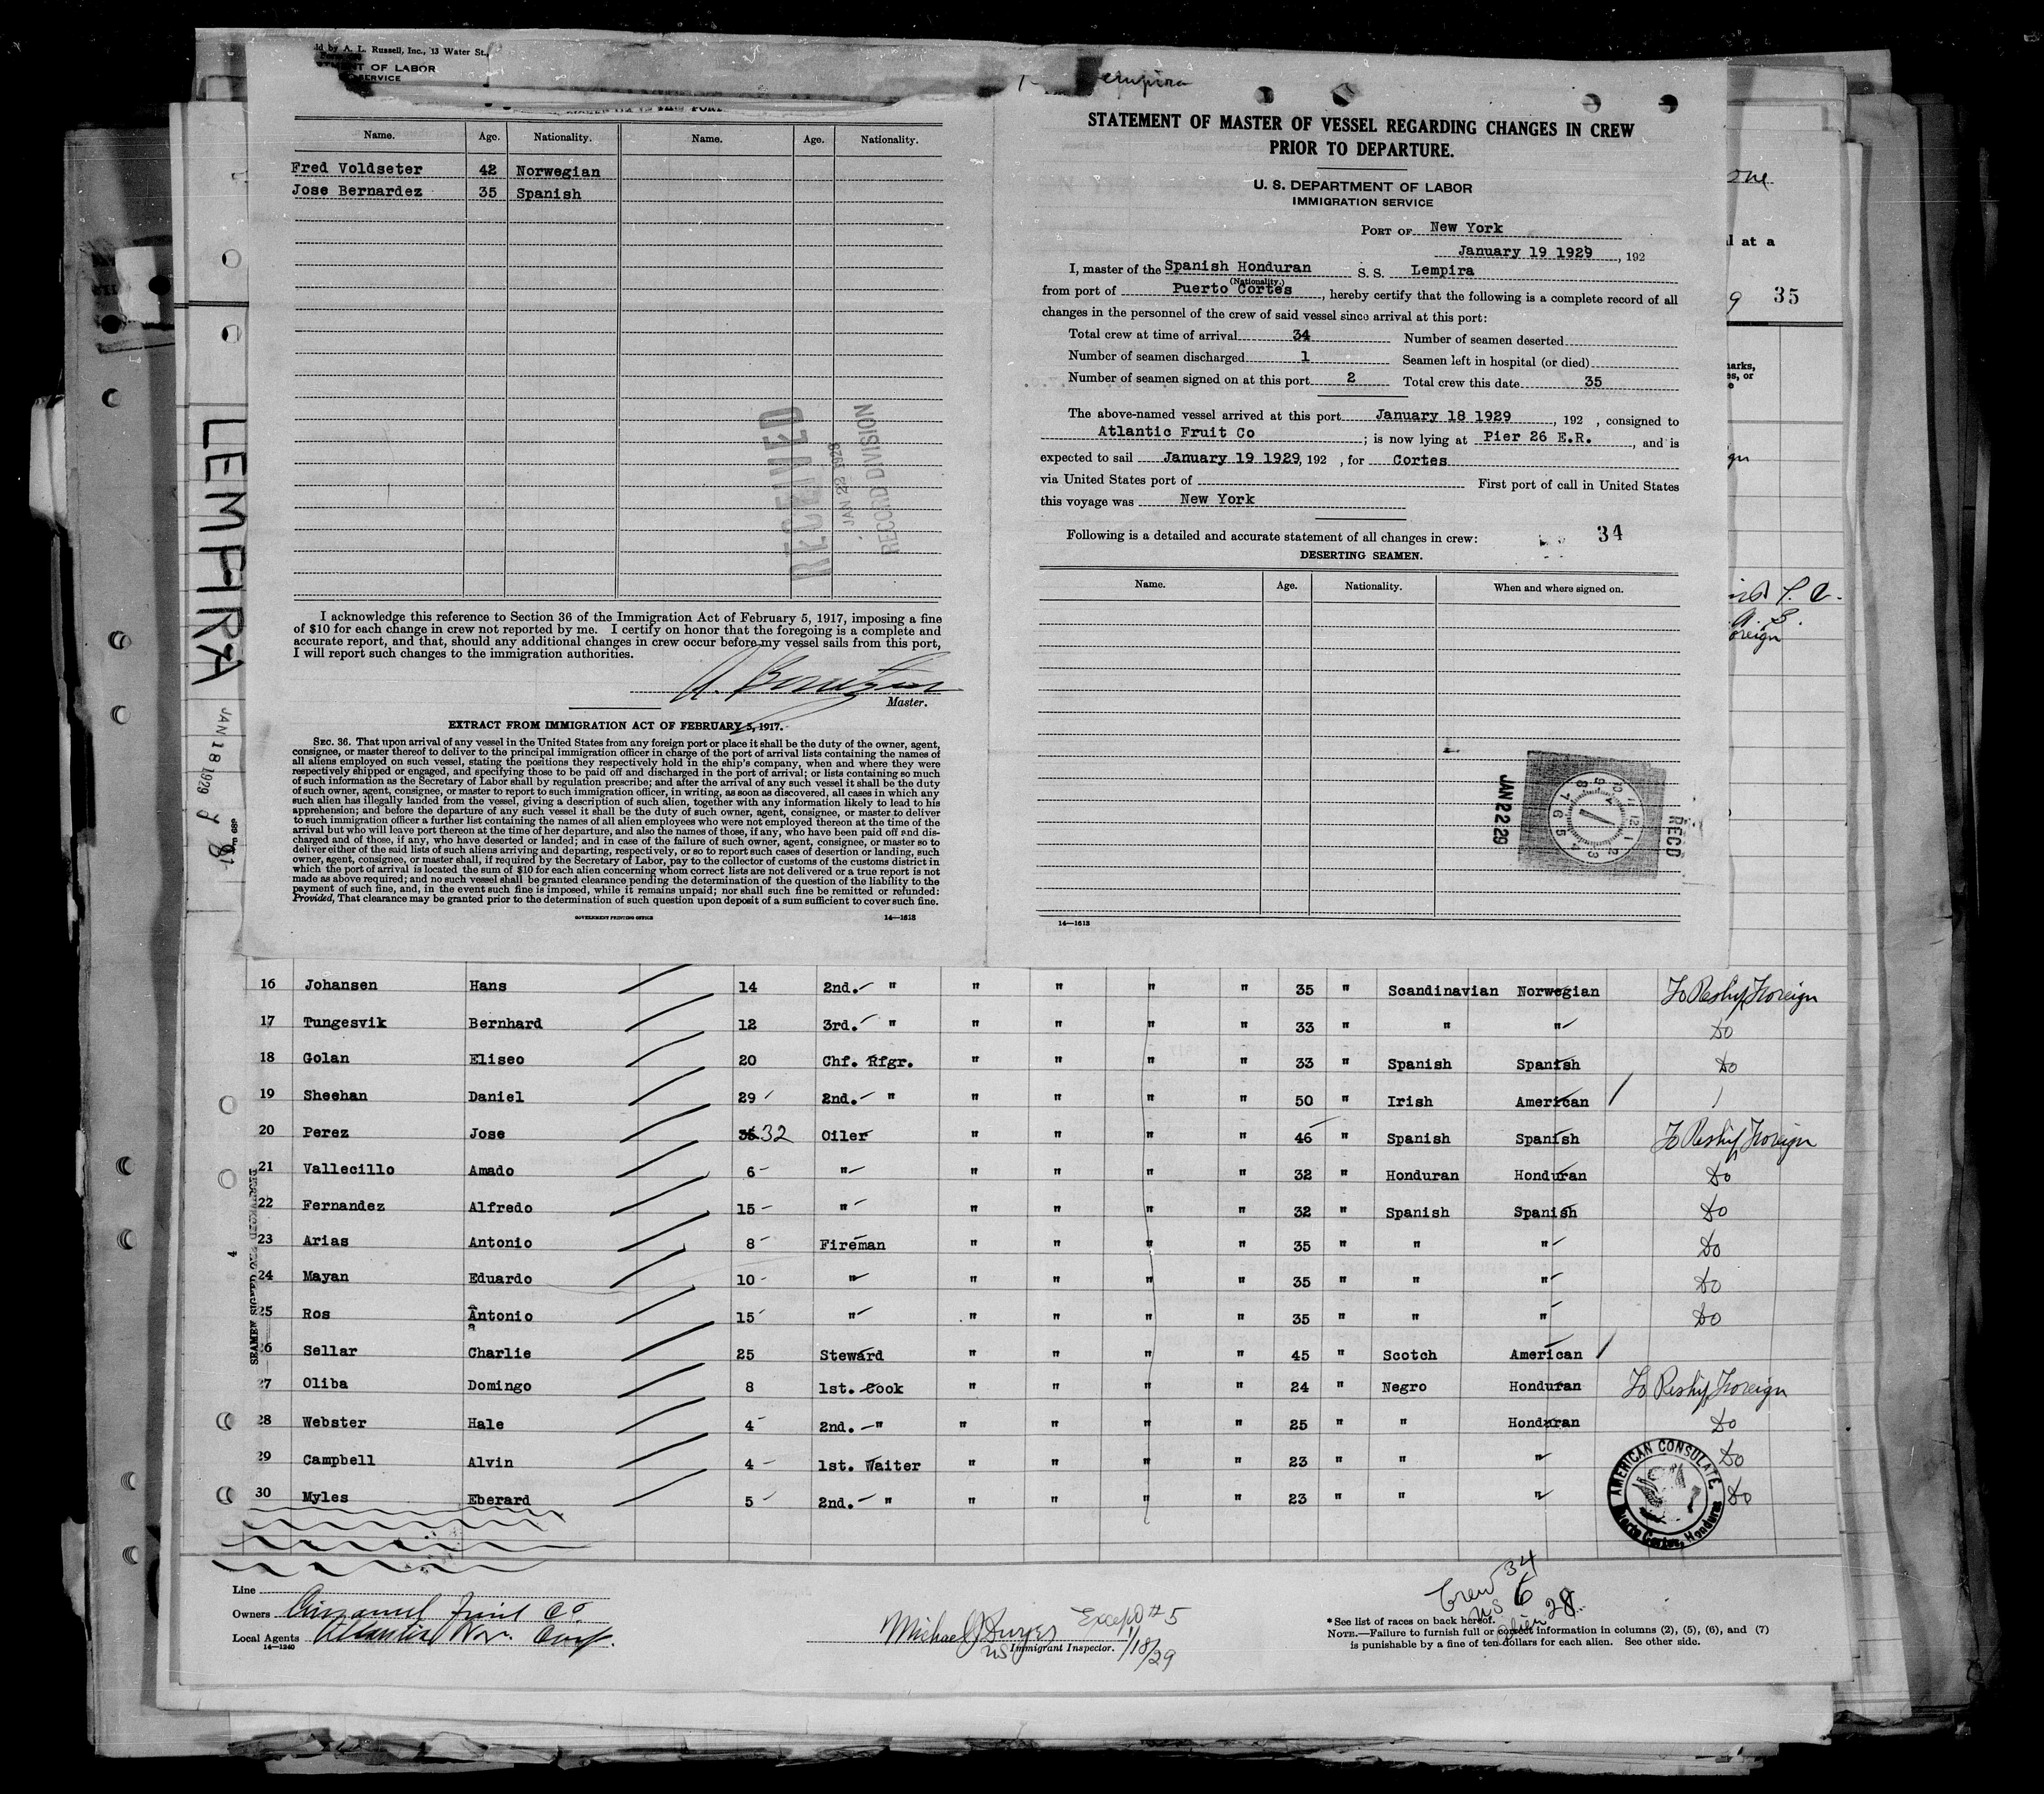 ld by A. L. Russell, Inc., 13 Water St.,
OF LABOR
SERVICE
Name. Age. Nationality. Name. Age. Nationality.
Fred Voldseter 42 Norwegian
Jose Bernardez 35 Spanish
RECEIVED
JAN 22 1929
RECORD DIVISION
I acknowledge this reference to Section 36 of the Immigration Act of February 5, 1917, imposing a fine
of $10 for each change in crew not reported by me. I certify on honor that the foregoing is a complete and
accurate report, and that, should any additional changes in crew occur before my vessel sails from this port,
I will report such changes to the immigration authorities.
Master.
EXTRACT FROM IMMIGRATION ACT OF FEBRUARY 5, 1917.
SEC. 36. That upon arrival of any vessel in the United States from any foreign port or place it shall be the duty of the owner, agent,
consignee, or master thereof to deliver to the principal immigration officer in charge of the port of arrival lists containing the names of
all aliens employed on such vessel, stating the positions they respectively hold in the ship's company, when and where they were
respectively shipped or engaged, and specifying those to be paid off and discharged in the port of arrival; or lists containing so much
of such information as the Secretary of Labor shall by regulation prescribe; and after the arrival of any such vessel it shall be the duty
of such owner, agent, consignee, or master to report to such immigration officer, in writing, as soon as discovered, all cases in which any
such alien has illegally landed from the vessel, giving a description of such alien, together with any information likely to lead to his
apprehension; and before the departure of any such vessel it shall be the duty of such owner, agent, consignee, or master to deliver
to such immigration officer a further list containing the names of all alien employees who were not employed thereon at the time of the
arrival but who will leave port thereon at the time of her departure, and also the names of those, if any, who have been paid off and dis-
charged and of those, if any, who have deserted or landed; and in case of the failure of such owner, agent, consignee, or master so to
deliver either of the said lists of such aliens arriving and departing, respectively, or so to report such cases of desertion or landing, such
owner, agent, consignee, or master shall, if required by the Secretary of Labor, pay to the collector of customs of the customs district in
which the port of arrival is located the sum of $10 for each alien concerning whom correct lists are not delivered or a true report is not
made as above required; and no such vessel shall be granted clearance pending the determination of the question of the liability to the
payment of such fine, and, in the event such fine is imposed, while it remains unpaid; nor shall such fine be remitted or refunded:
Provided, That clearance may be granted prior to the determination of such question upon deposit of a sum sufficient to cover such fine.
GOVERNMENT PRINTING OFFICE 14—1613
LEMPIRA
JAN 18 1929
empira
STATEMENT OF MASTER OF VESSEL REGARDING CHANGES IN CREW
PRIOR TO DEPARTURE.
U. S. DEPARTMENT OF LABOR
IMMIGRATION SERVICE
PORT OF New York
January 19 1929, 192
I, master of the Spanish Honduran S. S. Lempira
(Nationality.)
from port of Puerto Cortes, hereby certify that the following is a complete record of all
changes in the personnel of the crew of said vessel since arrival at this port:
Total crew at time of arrival 34 Number of seamen deserted
Number of seamen discharged 1 Seamen left in hospital (or died)
Number of seamen signed on at this port 2 Total crew this date 35
The above-named vessel arrived at this port January 18 1929, 192 , consigned to
Atlantic Fruit Co ; is now lying at Pier 26 E.R. , and is
expected to sail January 19 1929, 192 , for Cortes
via United States port of First port of call in United States
this voyage was New York
Following is a detailed and accurate statement of all changes in crew: 34
DESERTING SEAMEN.
Name. Age. Nationality. When and where signed on.
JAN 22 29
RECD
14—1613
one
l at a
9 35
arks,
es, or
oreign
16 Johansen Hans 14 2nd. " " " " " 35 " Scandinavian Norwegian To Reship Foreign
17 Tungesvik Bernhard 12 3rd. " " " " " 33 " " " Do
18 Golan Eliseo 20 Chf. Rfgr. " " " " 33 " Spanish Spanish Do
19 Sheehan Daniel 29 2nd. " " " " " 50 " Irish American
20 Perez Jose 36 32 Oiler " " " " 46 " Spanish Spanish To Reship Foreign
21 Vallecillo Amado 6 " " " " " 32 " Honduran Honduran Do
22 Fernandez Alfredo 15 " " " " " 32 " Spanish Spanish Do
23 Arias Antonio 8 Fireman " " " " 35 " " " Do
24 Mayan Eduardo 10 " " " " " 35 " " " Do
25 Ros Antonio 15 " " " " " 35 " " " Do
26 Sellar Charlie 25 Steward " " " " 45 " Scotch American
27 Oliba Domingo 8 1st. Cook " " " " 24 " Negro Honduran To Reship Foreign
28 Webster Hale 4 2nd. " " " " " 25 " " Honduran Do
29 Campbell Alvin 4 1st. Waiter " " " " 23 " " " Do
30 Myles Eberard 5 2nd. " " " " " 23 " " " Do
AMERICAN CONSULATE
Puerto Cortes, Honduras
Line
Owners
Local Agents
14—1240
Michael J
Except # 5
Immigrant Inspector. 1/18/29
Crew 34
US 6
Alien 28
* See list of races on back hereof.
NOTE.—Failure to furnish full or correct information in columns (2), (5), (6), and (7)
is punishable by a fine of ten dollars for each alien. See other side.